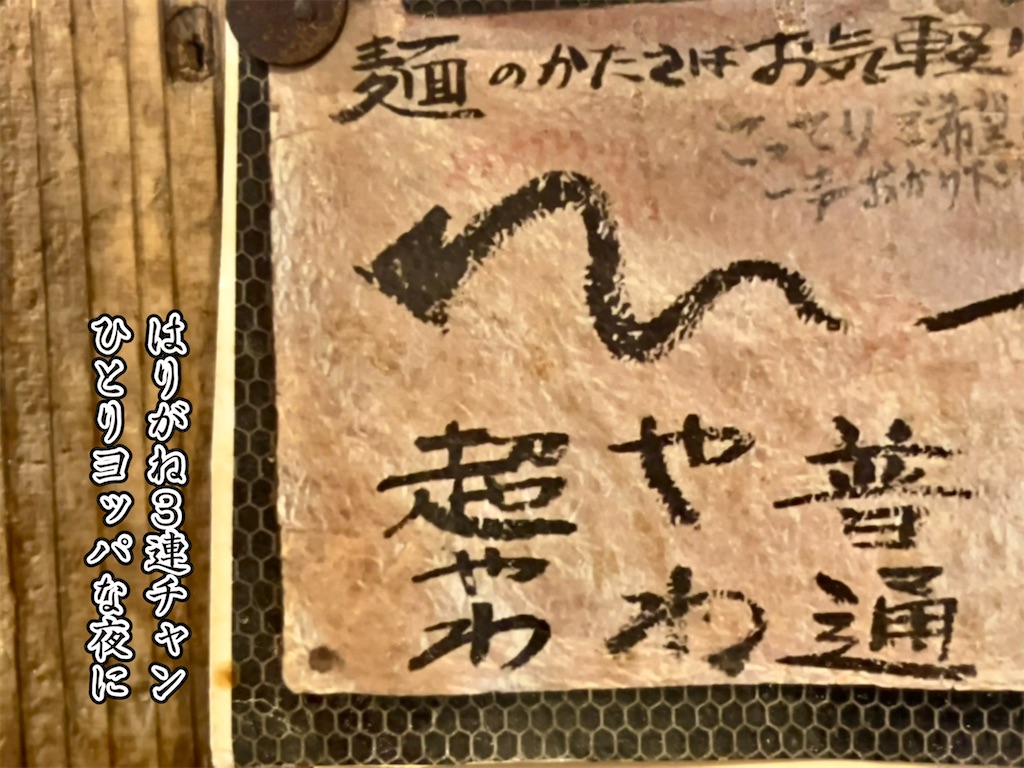 麺のかたさはお気軽
こってりご希望
一声おかけ下
普通
やわ
超やわ
はりがね3連チャン
ひとりヨッパな夜に